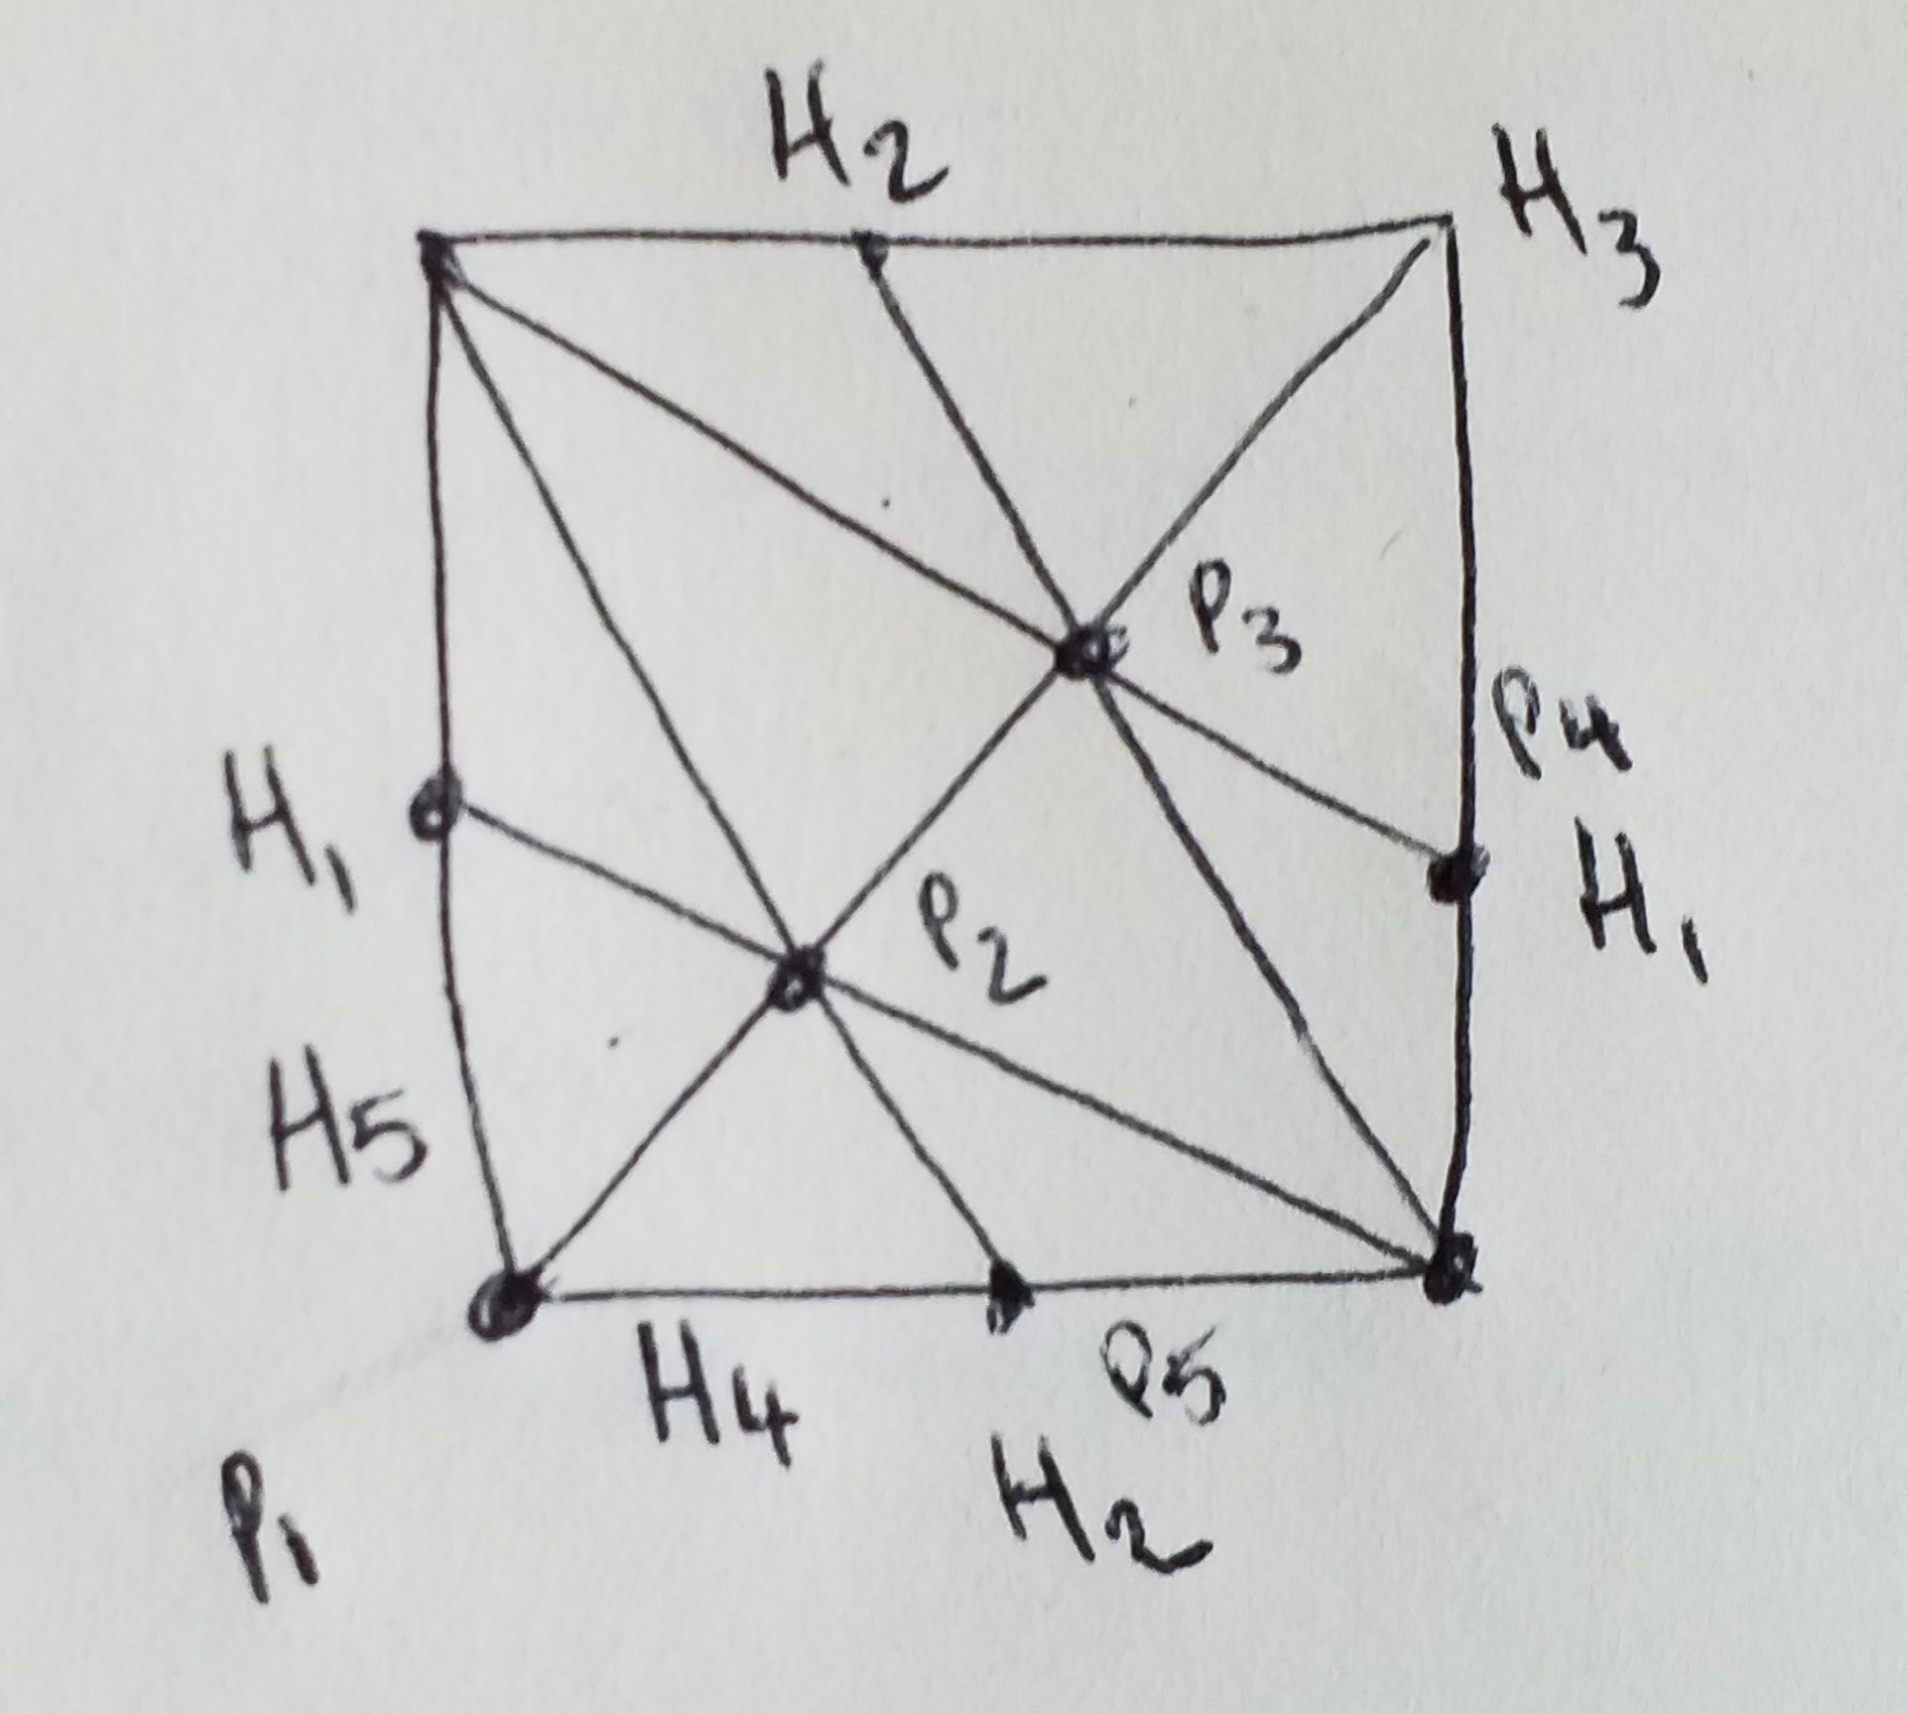 H2
H3
P3
P4
H1
H1
P2
H5
H4
P5
H2
P1